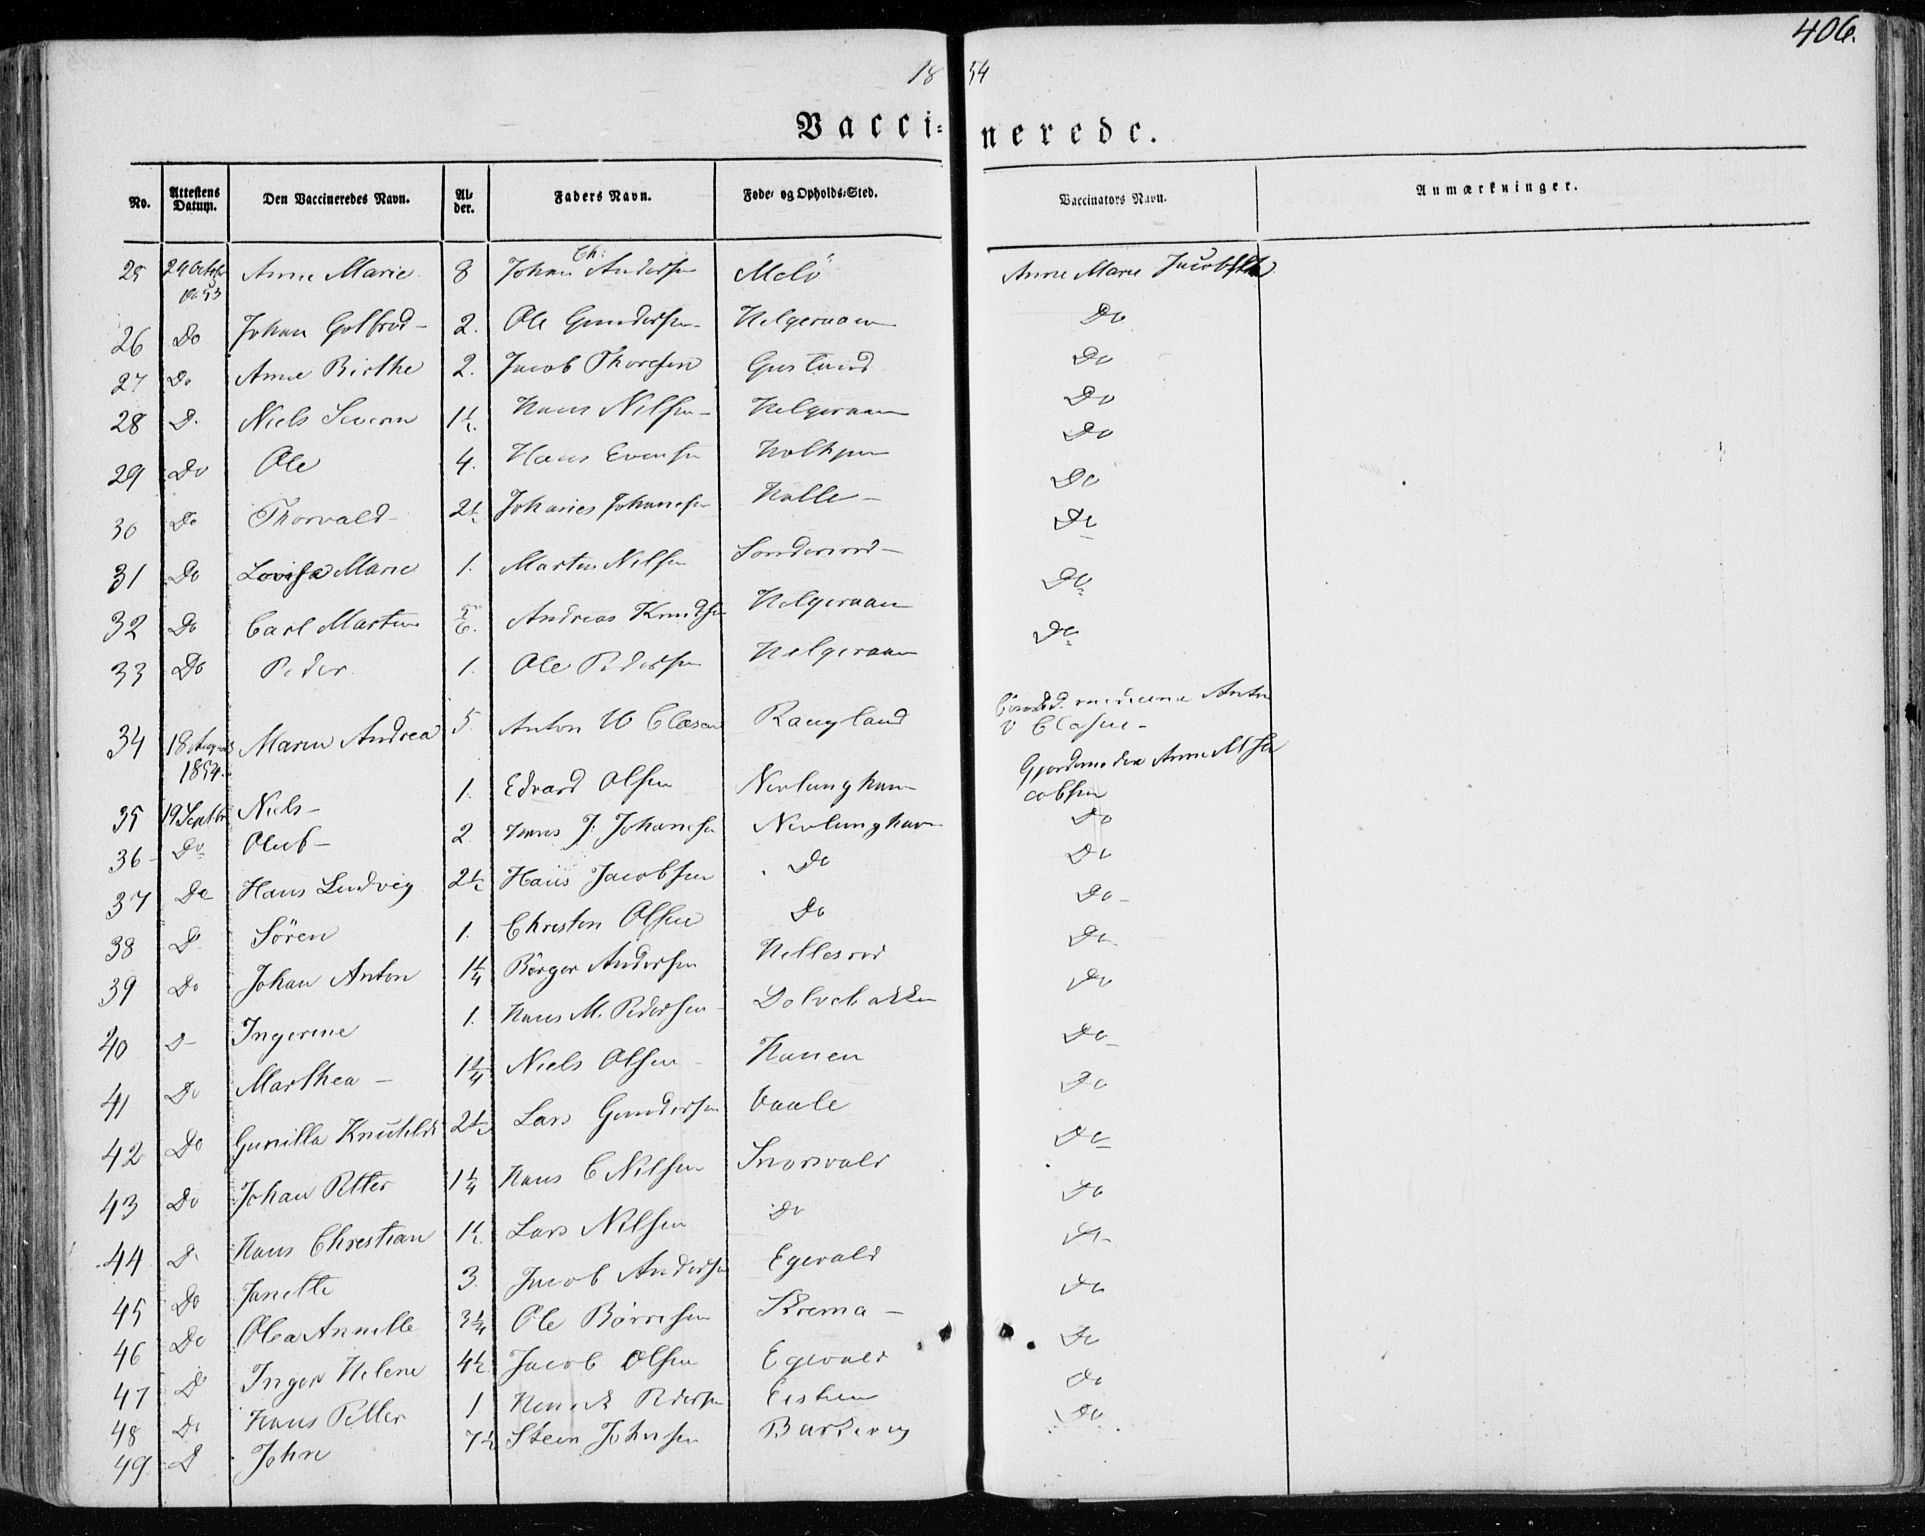 406.
18 54
Vacci= nerede.
No. Attestens Datum. Den Vaccineredes Navn. Al-der. Faders Navn. Føde- og Opholds-Sted. Vaccinators Navn. Anmærkninger.
25 29 Octob 1853 Anne Marie 8 Johan Ch: Andersen Melö Anne Marie Jacobsen
26 Do Johan Golfred 2. Ole Gundersen Helgeraaen Do
27 Do Anne Birthe 2. Jacob Thoresen Gusland Do
28 D. Niels Severin 1½. Hans Nilsen Helgeraaen Do
29 Do Ole 4. Hans Evensen Do
30 Do Thorvald 2½ Johanes Johanesen Halle Do
31 Do Lovise Marie 1. Marten Nilsen Sonderød Do
32 Do Carl Martin 5/6. Andreas Knudsen Helgeraaen Do
33 Do Peder 1. Ole Pedersen Helgeraaen Do
34 18 August 1854. Maren Andrea 5. Anton W Clasen Raugland Anton
v Clasen
35 19 Septbr Niels 1. Edvard Olsen Nevlunghavn Gjordemoder Anne M Ja
cobsen
36 Do Oluf 2 Hans J. Johanesen Nevlunghavn Do
37 Do Hans Ludvig 2½ Hans Jacobsen Do Do
38 D Sören 1. Christen Olsen Do Do
39 Do Johan Anton 1¼ Börger Andersen Hellesrød Do
40 D Ingerine 1. Hans M. Pedersen Dolvebakken Do
41 Do Marthea 1¼ Niels Olsen Hauen Do
42 Do Gunilla Knutelde 2½ Lars Gundersen Vaale Do
43 Do Johan Petter 1¼ Hans C Nilsen Snorvald Do
44 D. Hans Christian 1½. Lars Nilsen Do Do
45 Do Janette 3. Jacob Andersen Egevald Do
46 Do Olea Annette 3¼ Ole Börresen Skrema Do
47 D Inger Helene 4½ Jacob Olsen Egevald Do
48 Do Hans Petter 1 Henrik Pedersen Do
49 D John 7½ Steen Johnsen Barkevig Do